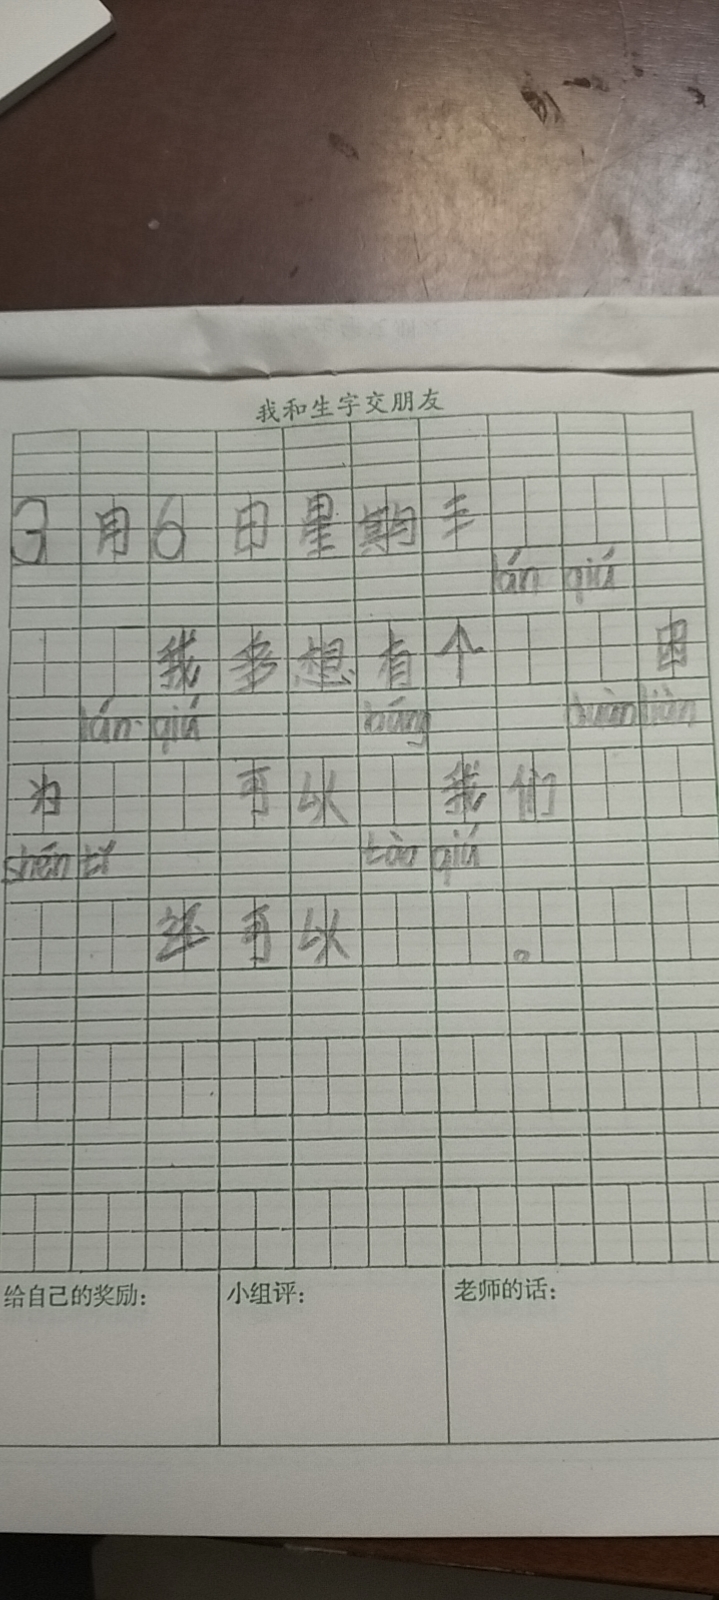 我和生字交朋友
3月6日星期三
lán qiú
我多想有个因
lán qiú bāng duàn liàn
为可以我们
shēn tǐ tóu qiú
还可以。
给自己的奖励:
小组评:
老师的话: